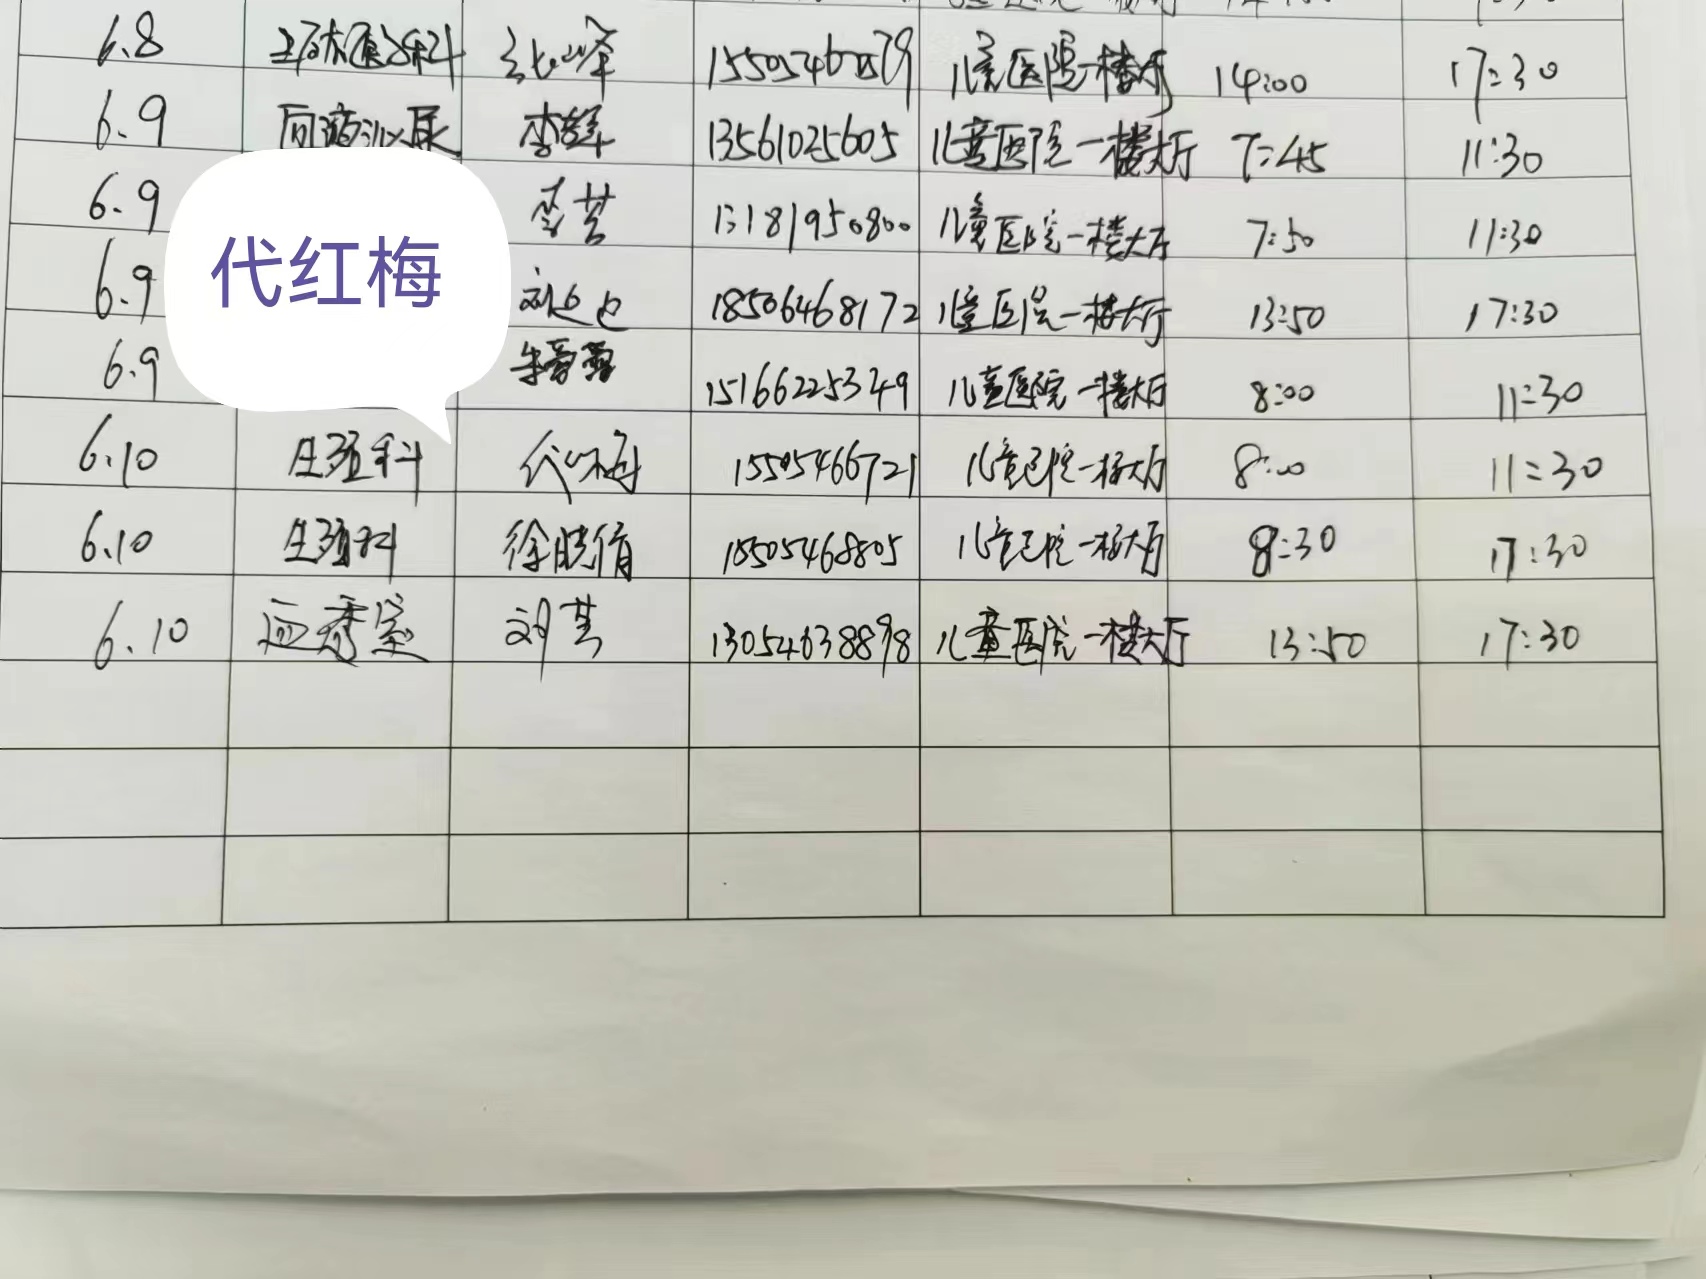 6.8 15505460579 儿童医院一楼大厅 14:00 17:30
6.9 13561025605 儿童医院一楼大厅 7:45 11:30
6.9 李芸 13181950800 儿童医院一楼大厅 7:50 11:30
6.9 18506468172 儿童医院一楼大厅 13:50 17:30
6.9 15166225349 儿童医院一楼大厅 8:00 11:30
代红梅
6.10 生殖科 代红梅 15505466721 儿童医院一楼大厅 8:00 11:30
6.10 生殖科 徐晓倩 15505468805 儿童医院一楼大厅 8:30 17:30
6.10 血透室 刘芸 13054638898 儿童医院一楼大厅 13:50 17:30